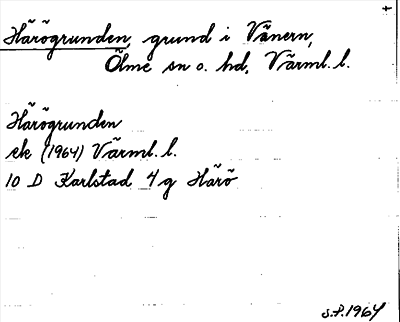 Härögrunden, grund i Vänern,
Ölme sn o. hd, Värml. l.
Härögrunden
ek (1964) Värml. l.
10 D Karlstad 4g Härö
S.P. 1964